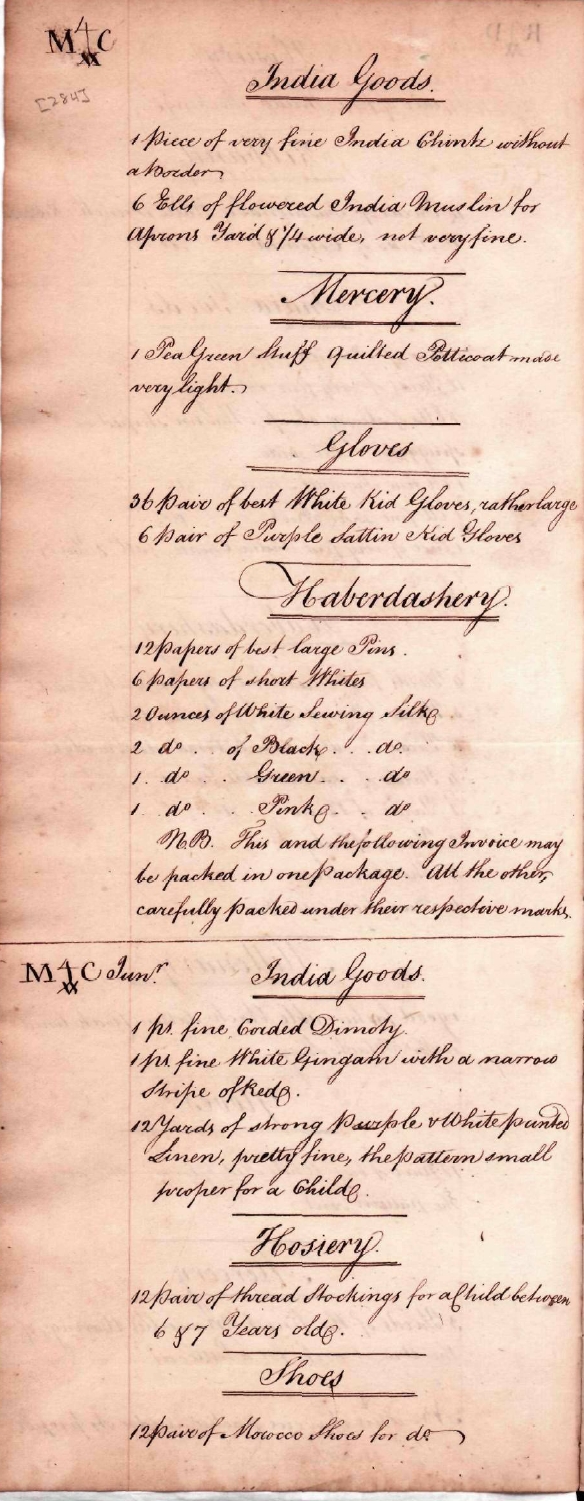 M4C
[284]
India Goods.
1 Piece of very fine India Chintz without
a Border
6 Ells of flowered India Muslin for
Aprons Yard & 1/4 wide, not very fine.
Mercery.
1 Pea Green Stuff Quilted Petticoat made
very light.
Gloves
36 Pair of best White Kid Gloves, rather large
6 Pair of Purple Sattin Kid Gloves
Haberdashery.
12 papers of best large Pins.
6 papers of short Whites
2 Ounces of White Sewing Silk
2 do . . of Black . . do.
1. do . . Green . . do
1. do . . Pink . . do
N.B. This and the following Invoice may
be packed in one Package. All the other,
carefully packed under their respective marks.
M4C Junr.
India Goods.
1 ps. fine Corded Dimoty.
1 ps. fine White Gingam with a narrow
Stripe of Red.
12 Yards of strong Purple & White printed
Linen, pretty fine, the pattern small
proper for a Child.
Hosiery.
12 Pair of thread Stockings for a Child between
6 & 7 Years old.
Shoes
12 Pair of Morocco Shoes for do.